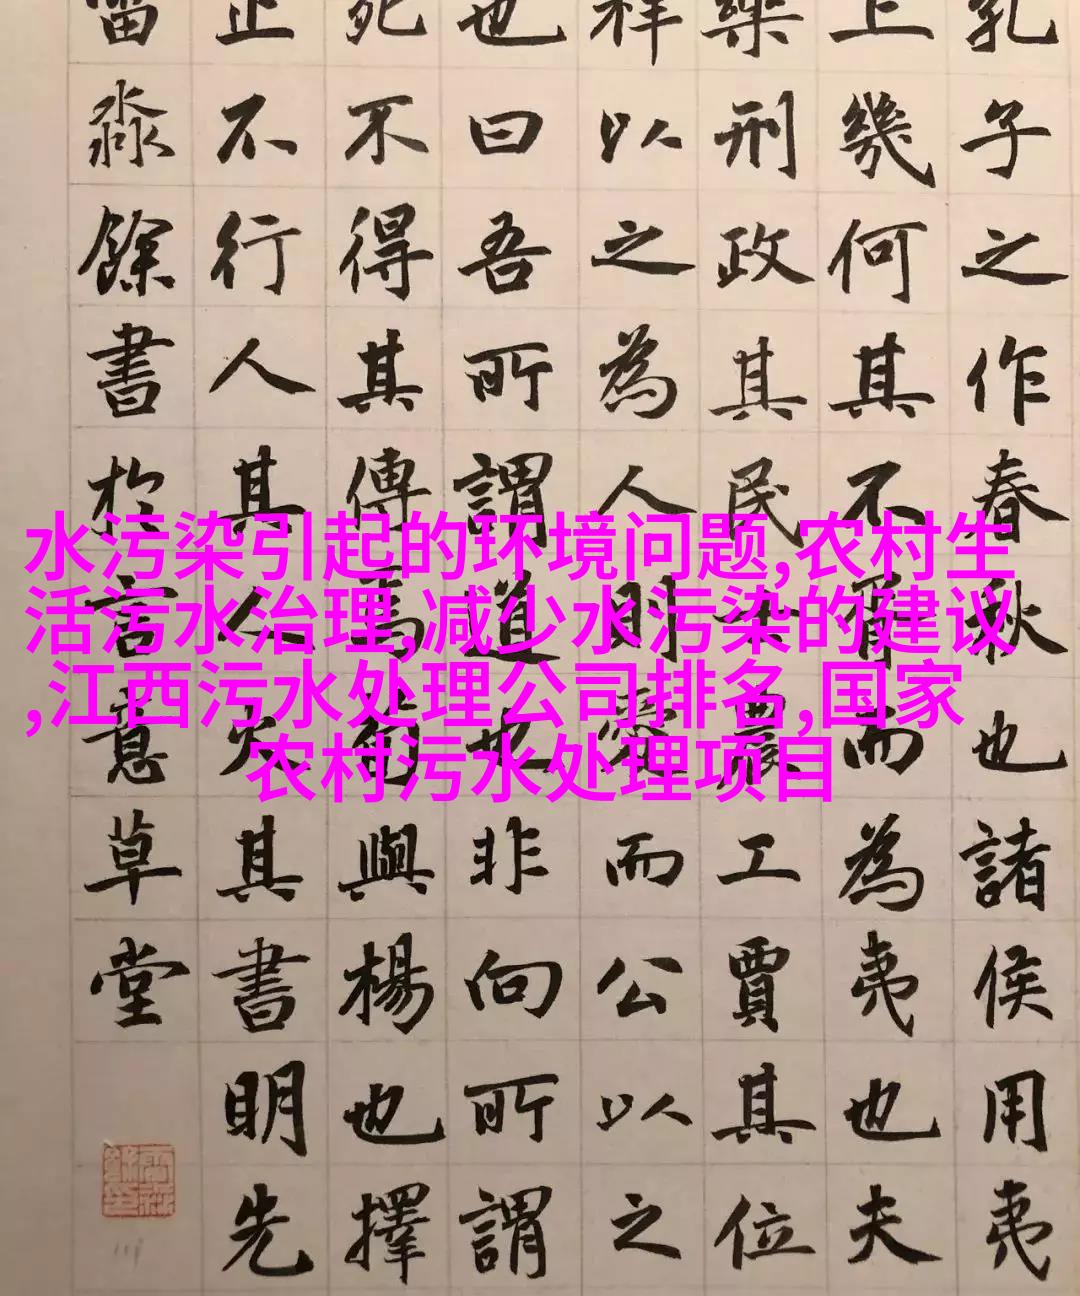 孔子之作春秋也諸侯用夷
上幾何其不胥而為夷也夫
樂刑政其民士農工賈其位
祥以之為人則愛而公以之
也曰吾所謂道也非向所謂
死不得其傳焉荀與楊也擇
止不行人其人火其書明先
淼餘書於言意草堂
水污染引起的环境问题,农村生
活污水治理,减少水污染的建议
,江西污水处理公司排名,国家
农村污水处理项目